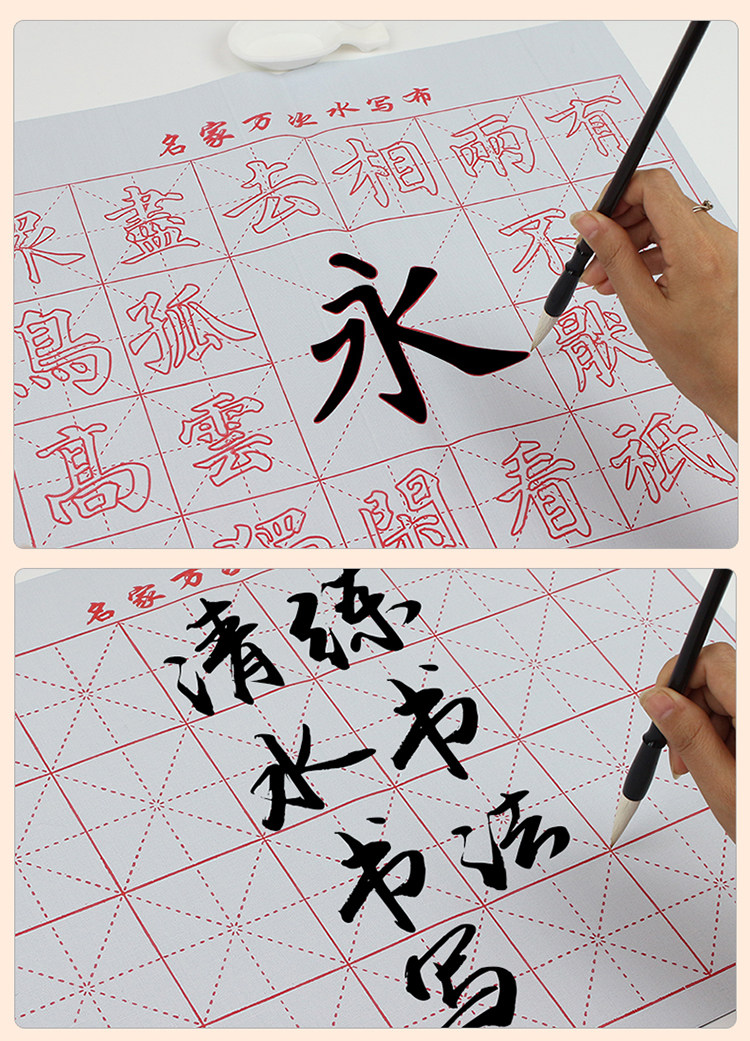 名家万次水写布
眾盡去相兩有
鳥孤不
永
高雲
獨閑看祇
名家万
清水书写
练书法